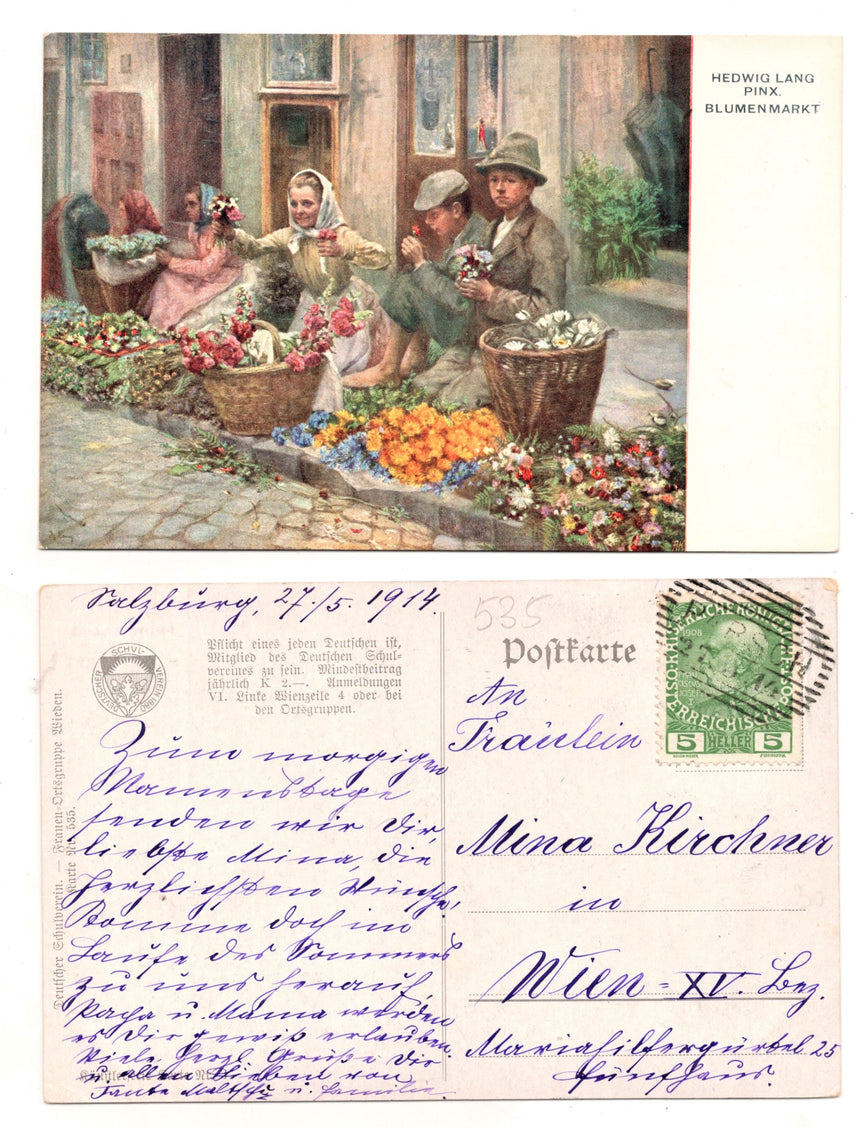 HEDWIG LANG
PINX.
BLUMENMARKT
Salzburg, 27./5. 1914.
535
SCHUL-
VEREIN 1880
DEUTSCHER
Pflicht eines jeden Deutschen ist,
Mitglied des Deutschen Schul-
vereines zu sein. Mindestbeitrag
jährlich K 2.—. Anmeldungen
VI. Linke Wienzeile 4 oder bei
den Ortsgruppen.
Zum morgigen
Namenstage
senden wir Dir,
liebste Mina, die
herzlichsten Wünsche.
Komme doch im
Laufe des Sommers
zu uns herauf,
Papa u. Mama werden
es Dir gewiß erlauben.
Viele herzl. Grüße Dir
u. allen Lieben von
Tante u. Familie.
Deutscher Schulverein. — Frauen-Ortsgruppe Wieden.
Karte Nr. 535.
Postkarte
1908
5 HELLER 5
An
Fräulein
Mina Kirchner
in
Wien = XV. Bez.
Mariahilfergürtel 25
Fünfhaus.